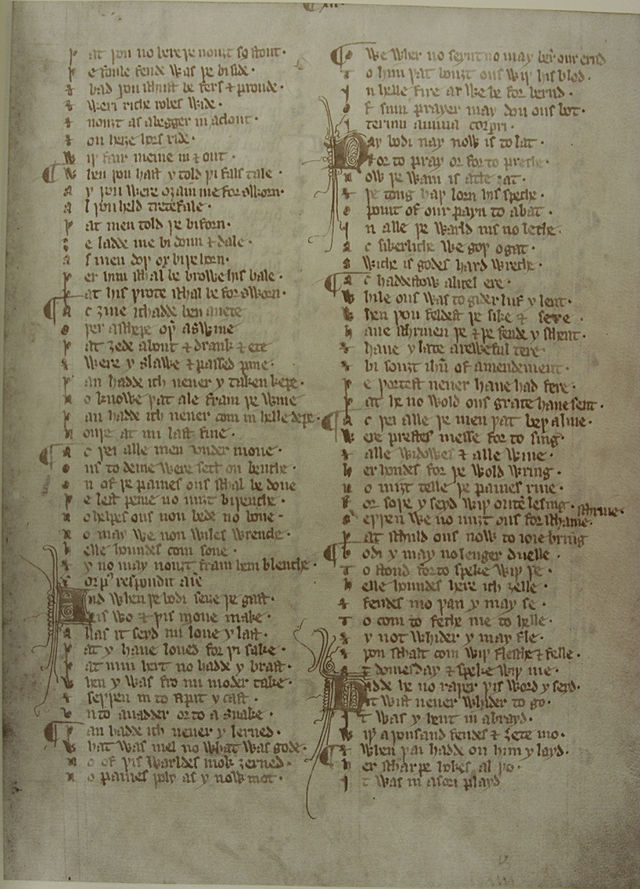 xii.
Þ at þou no bere þe nouȝt so stout.
Þ e foule fende was þe biside.
& bad þou schust be fers & proude.
& weri riche robes wide.
& nouȝt as a begger in a clout.
& on heiȝe hors ride.
W iþ fair meine in & out.
W hen þou hast y told þi fals tale
a y þou were oȝain me forsworn.
a l þou held
Þ at men told þe biforn.
Þ e ladde me bi doun & dale
a s men doþ ox bi þe horn.
Þ er him schal be browe his bale.
Þ at his þrote schal be forschorn.
a c ȝine ich hadde ben
o þer a schepe oþer a swine
Þ at ȝede about & drank & ete
& were y slawe & passed pine.
Þ an hadde ich never y taken kepe.
T o knowe þat ale fram þe wine
Þ an hadde ich never com in helle depe.
N ouþe at mi last fine.
a c þei alle men under mone.
o us to deme were sett on benche.
o n of þe paines ous schal be done
Þ e lest peine no miȝt biþenche.
N o helpes ous non bede no bone.
N o may we non wiles wrenche.
H elle houndes com sone.
& y no may nouȝt fram hem blenche.
corpus respondit anime
And when þe bodi seiȝe þe gast.
Þ is wo & þis mone make.
A llas it seyd mi love y last.
Þ at y have loved for þi sake.
Þ at min hert no hadde y brast.
Þ en y was fro mi moder take.
& seþþen in to a pit y cast.
o nto a nadder or to a snake.
Þ an hadde ich never y lerned.
W hat was iuel no what was gode.
N o of þis warldes mok ȝerned.
N o paines þoly as y now mot.
W e wher no seynt no may ber our ernd
T o him þat bouȝt ous wiþ his blod.
I n helle fire ar we be forbernd.
Þ f sum prayer may don ous bot.
terniu anima corpori
Nay bodi now is to lat.
F or to pray or for to preche.
N ow þe wain is atte ȝat.
& þe tong haþ lorn his speche.
o point of our payn to abat
I n alle þe warld nis no leche.
a c sikerliche we goþ o gat.
S wiche is godes hard wreche.
a c haddestow a litel ere.
W hile ous was to gider liif y lent.
W hen þou feldest þe sike & sere
h ave schriven þe & þe fende y schent
& have y lete a rewe ful tere
& bi souȝt ihu of amendement.
Þ e þortest never have had fere.
Þ at he no wold ous grace have sent.
a c þei alle þe men þat beþ alive.
W ere prestes messe for to sing.
& alle widowes & alle wive.
h er hondes for þe wold wring.
N o miȝt telle þe paines rive.
N or soþe y seyd wiþ outen lesing. schrive
S eþþen we no miȝt ous for schame.
Þ at schuld ous now to ioie bring
B odi y may no lenger duelle.
T o stond forto speke wiþ þe.
h elle houndes here ich ȝelle.
& fendes mo þan y may se.
T o com to feche me to helle.
& y not whider y may fle.
& þou schalt com wiþ flesche & felle.
at domesday & speke wiþ me.
Hadde he no raþer þis word y seyd.
It wist never whider to go.
I t was y hent in a brayd.
W iþ a þousand fendes & ȝete mo.
When þai hadde on him y layd.
h er scharpe hokes al þo.
I t was in a sori playd